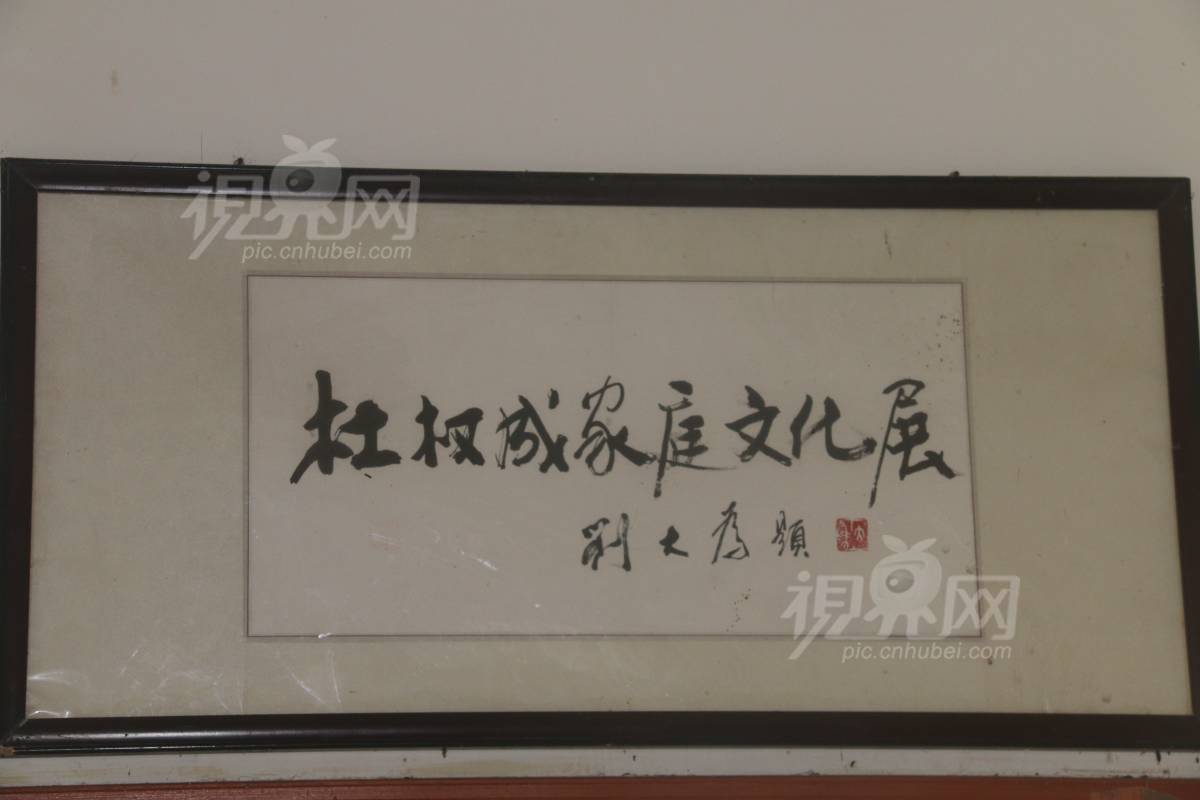 視界网
pic.cnhubei.com
杜权成家庭文化展
劉大為題
視界网
pic.cnhubei.com